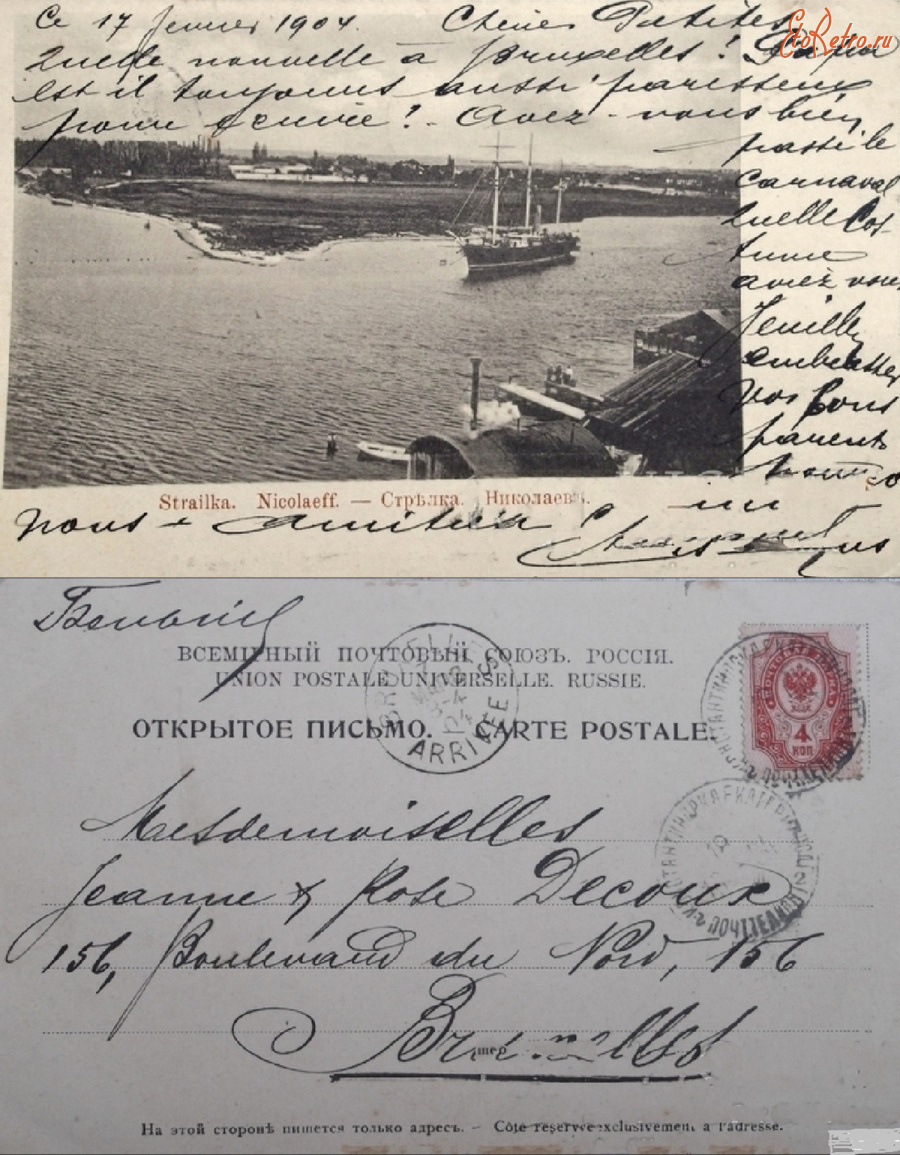 Ce 17 Janvier 1904. Chères Petites
EtoRetro.ru
Quelle nouvelle à Bruxelles! Papa
est il toujours aussi paresseux
pour écrire? - Avez-vous bien
passé le
Carnaval
Quelle Cos-
tume
aviez vous
Veuillez
embrasser
vos bons
parents
pour
Strailka. Nicolaeff. — Стрѣлка. Николаевъ.
nous + Amitiés
Бельгія
ВСЕМІРНЫЙ ПОЧТОВЫЙ СОЮЗЪ. РОССІЯ.
UNION POSTALE UNIVERSELLE. RUSSIE.
ОТКРЫТОЕ ПИСЬМО. CARTE POSTALE.
BRUXELLES
3-4
04
ARRIVEE
ПОЧТОВАЯ МАРКА
4
КОП
Mesdemoiselles
Jeanne & Rose Decoux
156, Boulevard du Nord, 156
Bruxelles
На этой сторонѣ пишется только адресъ. – Côte réservée exclusivement à l'adresse.